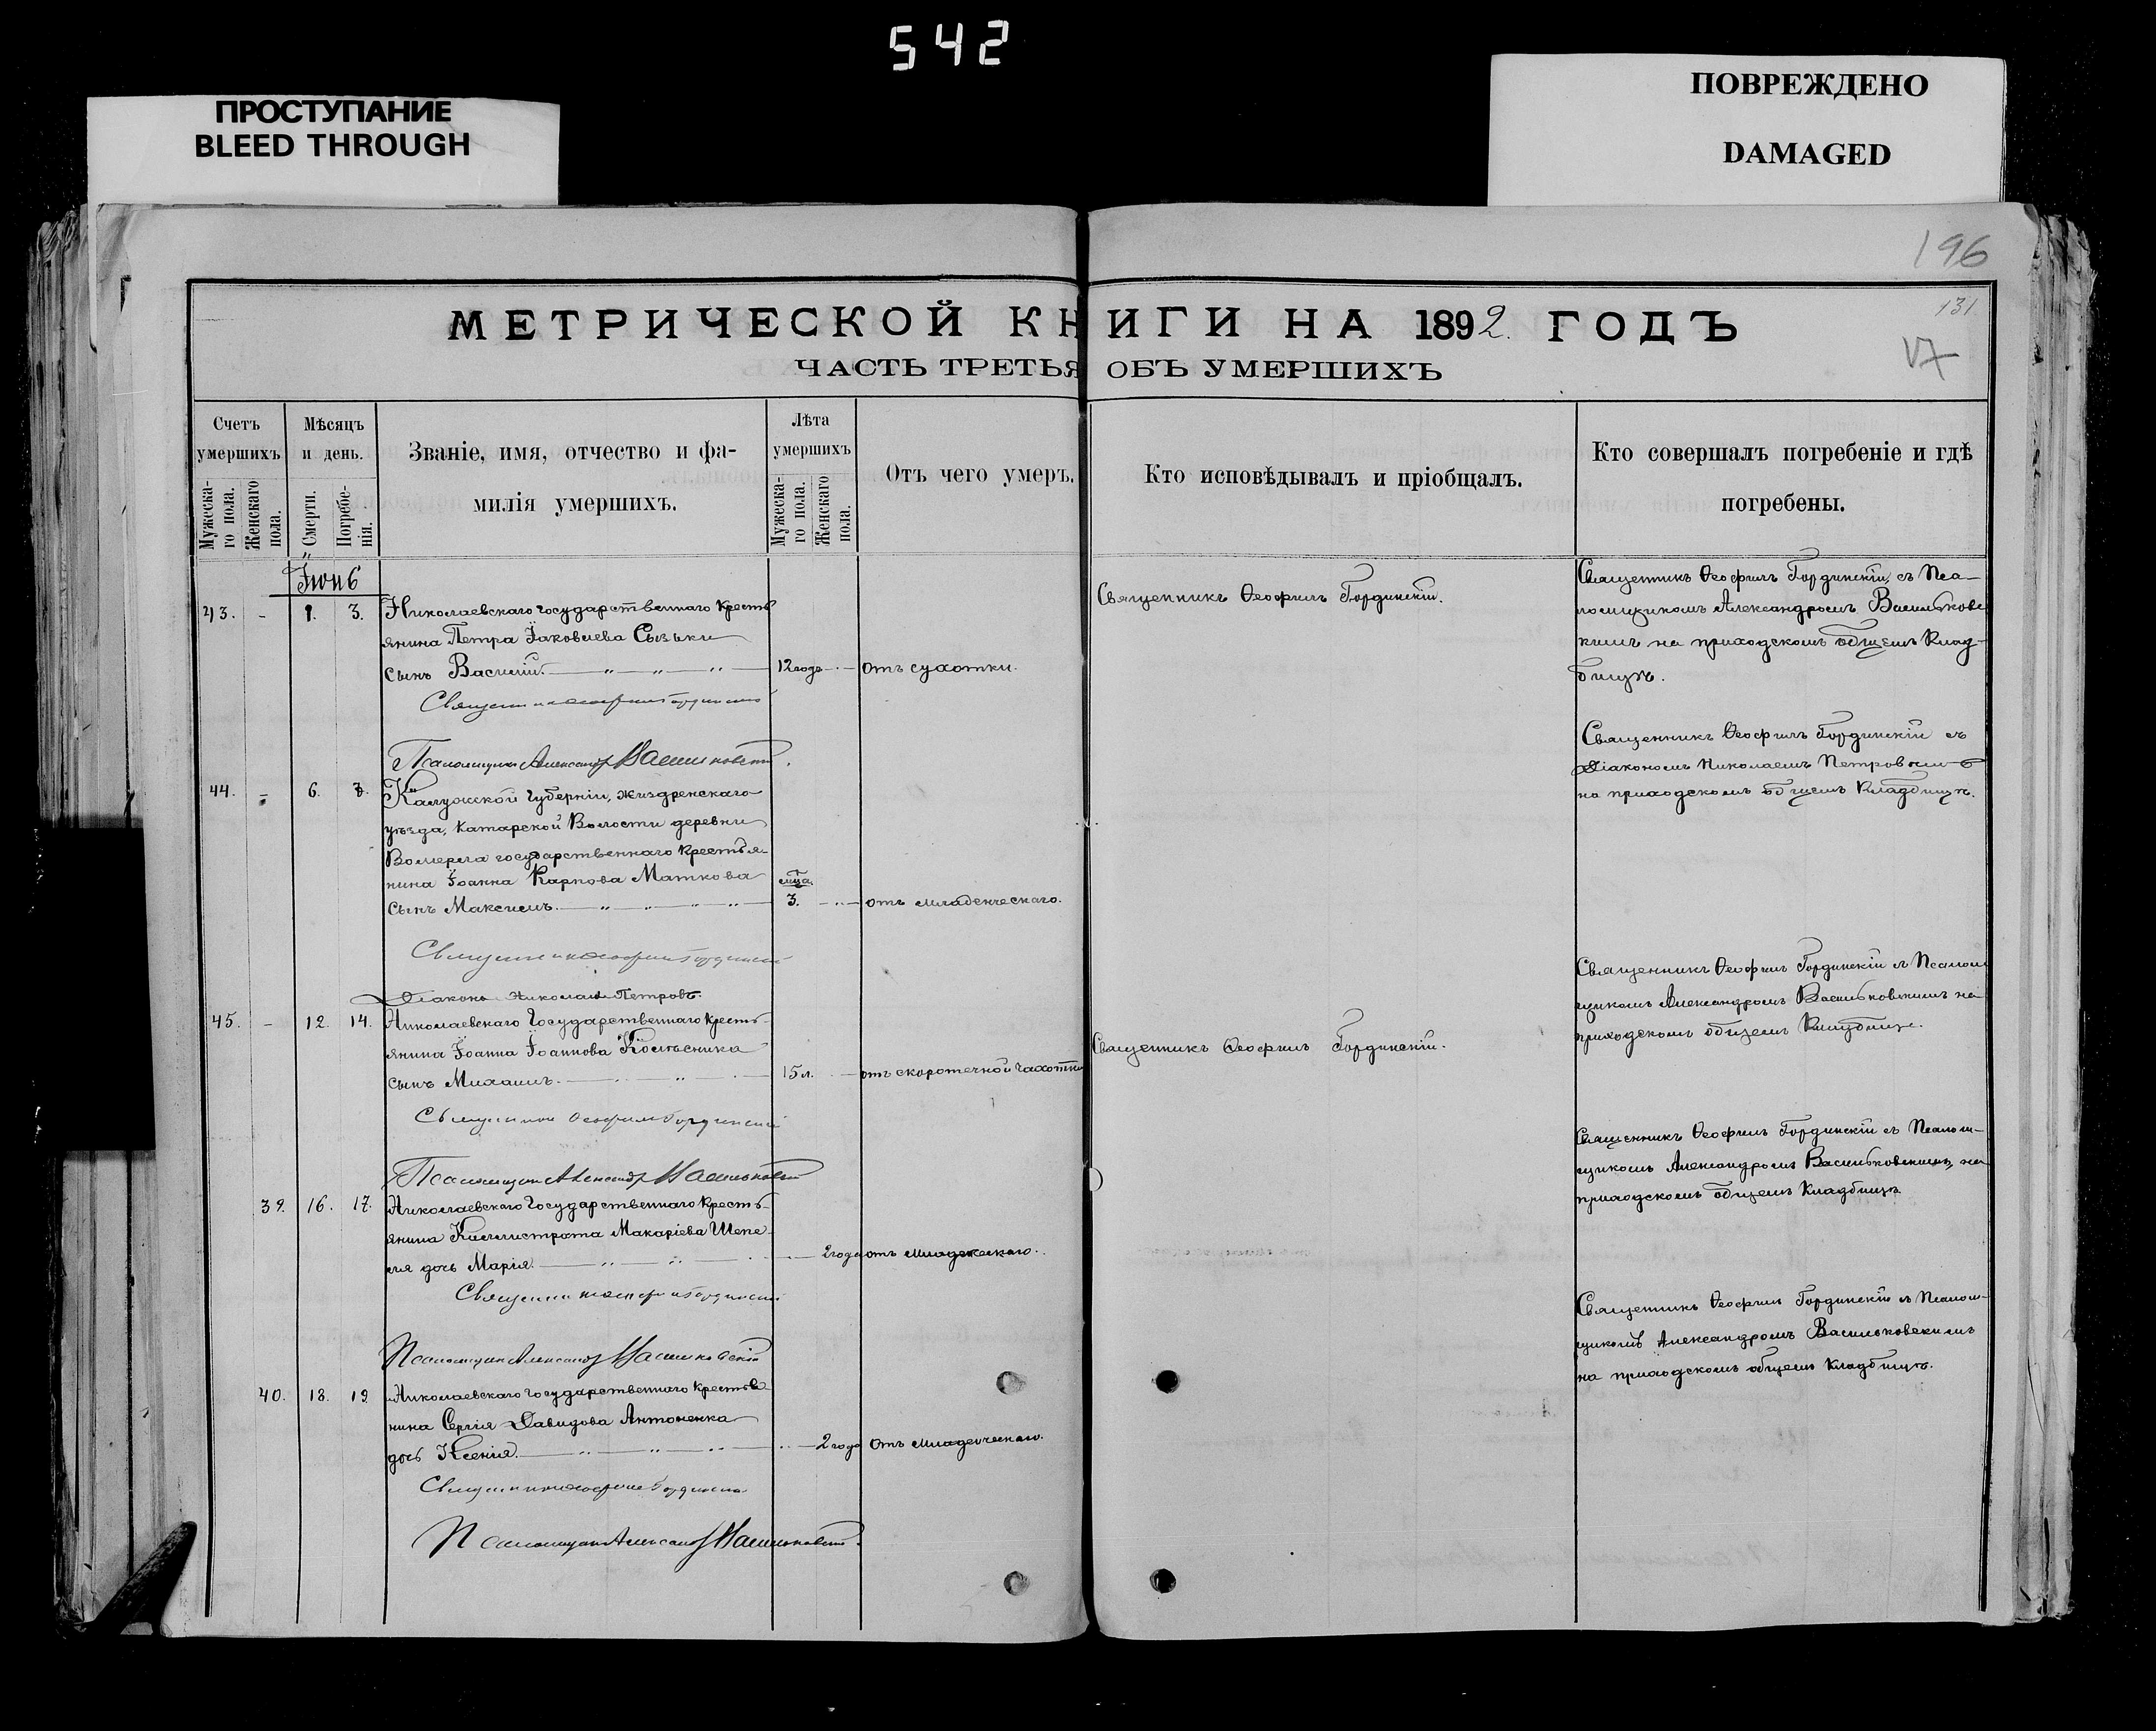 542
ПРОСТУПАНИЕ
BLEED THROUGH
ПОВРЕЖДЕНО
DAMAGED
196
131
МЕТРИЧЕСКОЙ КНИГИ НА 1892. ГОДЪ
ЧАСТЬ ТРЕТЬЯ ОБЪ УМЕРШИХЪ
Счетъ умершихъ.
Мужескаго пола.
Женскаго пола.
Мѣсяцъ и день.
Смерти.
Погребенія.
Званіе, имя, отчество и фамилія умершихъ.
Лѣта умершихъ
Мужескаго пола.
Женскаго пола.
Отъ чего умеръ.
Кто исповѣдывалъ и пріобщалъ.
Кто совершалъ погребеніе и гдѣ погребены.
43. - 1. 3. Николаевскаго государственнаго кресть
янина Петра Іаковлева
сынъ Василій. 12 годъ отъ сухотки.
Священникъ Ѳеофилъ Гординскій.
Священникъ Ѳеофилъ Гординскій, съ Пса-
ломщикомъ Александромъ Васильковс
кимъ на приходскомъ общемъ Клад-
бищѣ.
Псаломщикъ Александръ Васильковскій.
44. - 6. Калужской губерніи, Жиздренскаго
уѣзда, Волости деревни
государственнаго крестья-
нина Іоанна Карпова Маткова
сынъ Максимъ. мца. 3. отъ младенческаго.
Священникъ Ѳеофилъ Гординскій съ
Діакономъ Николаемъ Петровымъ
на приходскомъ общемъ Кладбищѣ.
Священникъ Ѳеофилъ Гординскій
Діаконъ Николай Петровъ.
45. - 12. 14. Николаевскаго Государственнаго кресть-
янина Іоанна Іоаннова Колѣсника
сынъ Михаилъ. 15 л. отъ скоротечной чахотки
Священникъ Ѳеофилъ Гординскій.
Священникъ Ѳеофилъ Гординскій съ Псалом
щикомъ Александромъ Васильковскимъ на
приходскомъ общемъ Кладбищѣ.
Священникъ Ѳеофилъ Гординскій
Псаломщикъ Александръ Васильковскій
39. 16. 17. Николаевскаго Государственнаго кресть-
янина Каллистрата Макаріева Шепе-
ля дочь Марія. 2 года отъ младенческаго.
Священникъ Ѳеофилъ Гординскій съ Псалом-
щикомъ Александромъ Васильковскимъ, на
приходскомъ общемъ Кладбищѣ
Священникъ Ѳеофилъ Гординскій
Псаломщикъ Александръ Васильковскій
40. 18. 19. Николаевскаго Государственнаго крестья
нина Сергія Давидова Антоненка
дочь Ксенія. 2 года отъ младенческаго.
Священникъ Ѳеофилъ Гординскій съ Псалом-
щикомъ Александромъ Васильковскимъ
на приходскомъ общемъ Кладбищѣ.
Священникъ Ѳеофилъ Гординскій
Псаломщикъ Александръ Васильковскій.